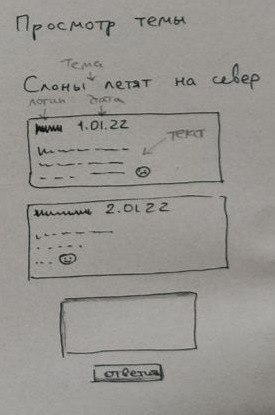 Просмотр темы
Тема
Слоны летят на север
логин дата
1.01.22
текст
2.01.22
ответить